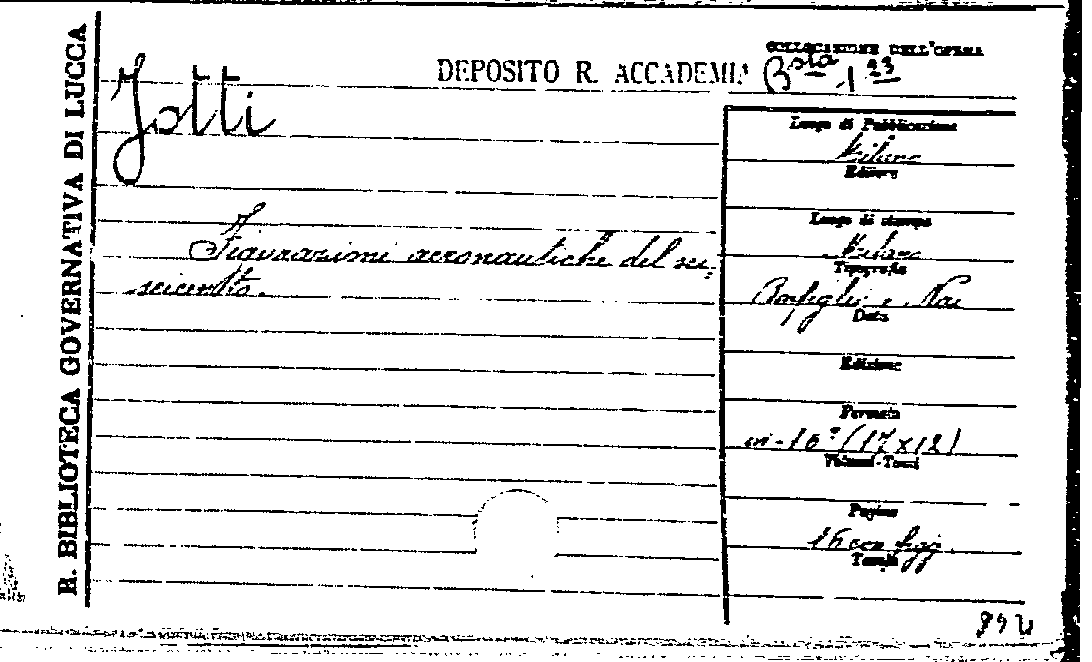 R. BIBLIOTECA GOVERNATIVA DI LUCCA
COLLOCAZIONE DELL'OPERA
DEPOSITO R. ACCADEMIA
Bsta 1 23
Jotti
Luogo di Pubblicazione
Milano
Editore
Luogo di stampa
Figurazioni aeronautiche del sei-
Milano
Tipografia
seicento.
Data
Edizione
Formato
in-16° (17x12)
Volumi-Tomi
Pagine
16 con figg.
Tavole